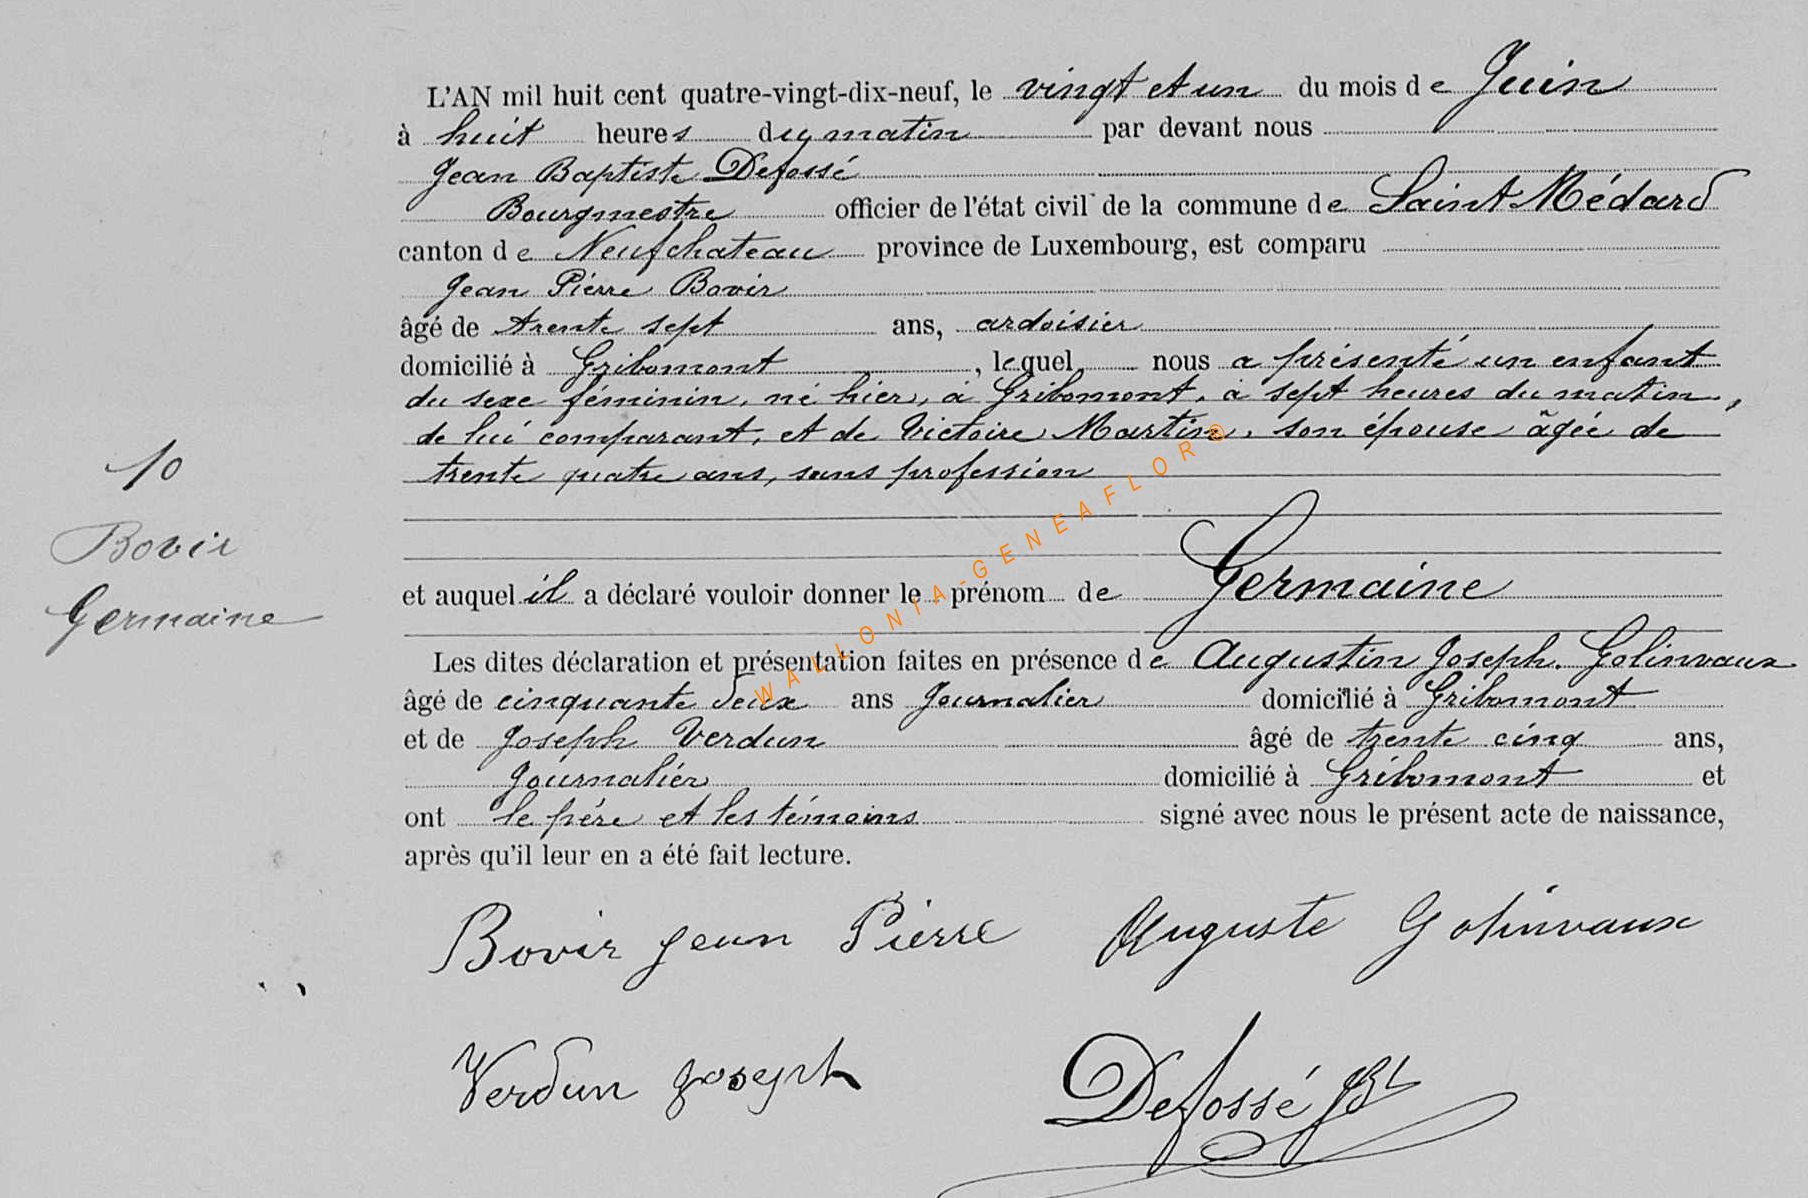 L'AN mil huit cent quatre-vingt-dix-neuf, le vingt et un du mois de Juin
à huit heures du matin par devant nous
Jean Baptiste Defossé
Bourgmestre officier de l'état civil de la commune de Saint Médard
canton de Neufchateau province de Luxembourg, est comparu
Jean Pierre Bovir
âgé de trente sept ans, ardoisier
domicilié à Gribomont, lequel nous a présenté un enfant
du sexe féminin, né hier, à Gribomont, à sept heures du matin,
de lui comparant, et de Victoire Martin, son épouse âgée de
trente quatre ans, sans profession
10
Bovir
Germaine
et auquel il a déclaré vouloir donner le prénom de Germaine
Les dites déclaration et présentation faites en présence de Augustin Joseph Golinvaux
âgé de cinquante deux ans Journalier domicilié à Gribomont
et de Joseph Verdun âgé de trente cinq ans,
Journalier domicilié à Gribomont et
ont le père et les témoins signé avec nous le présent acte de naissance,
après qu'il leur en a été fait lecture.
Bovir Jean Pierre Auguste Golinvaux
Verdun Joseph Defossé JBt
WALLONIA-GENEAFLORO